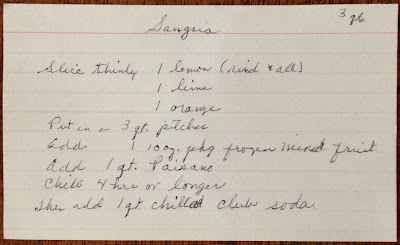 3 qts.
Sangria
Slice thinly 1 lemon (rind & all)
1 lime
1 orange
Put in a 3 qt. pitcher
Add 1 10oz. pkg frozen mixed fruit
Add 1 qt. Paisano
Chill 4 hrs or longer
Then add 1 qt chilled club soda.